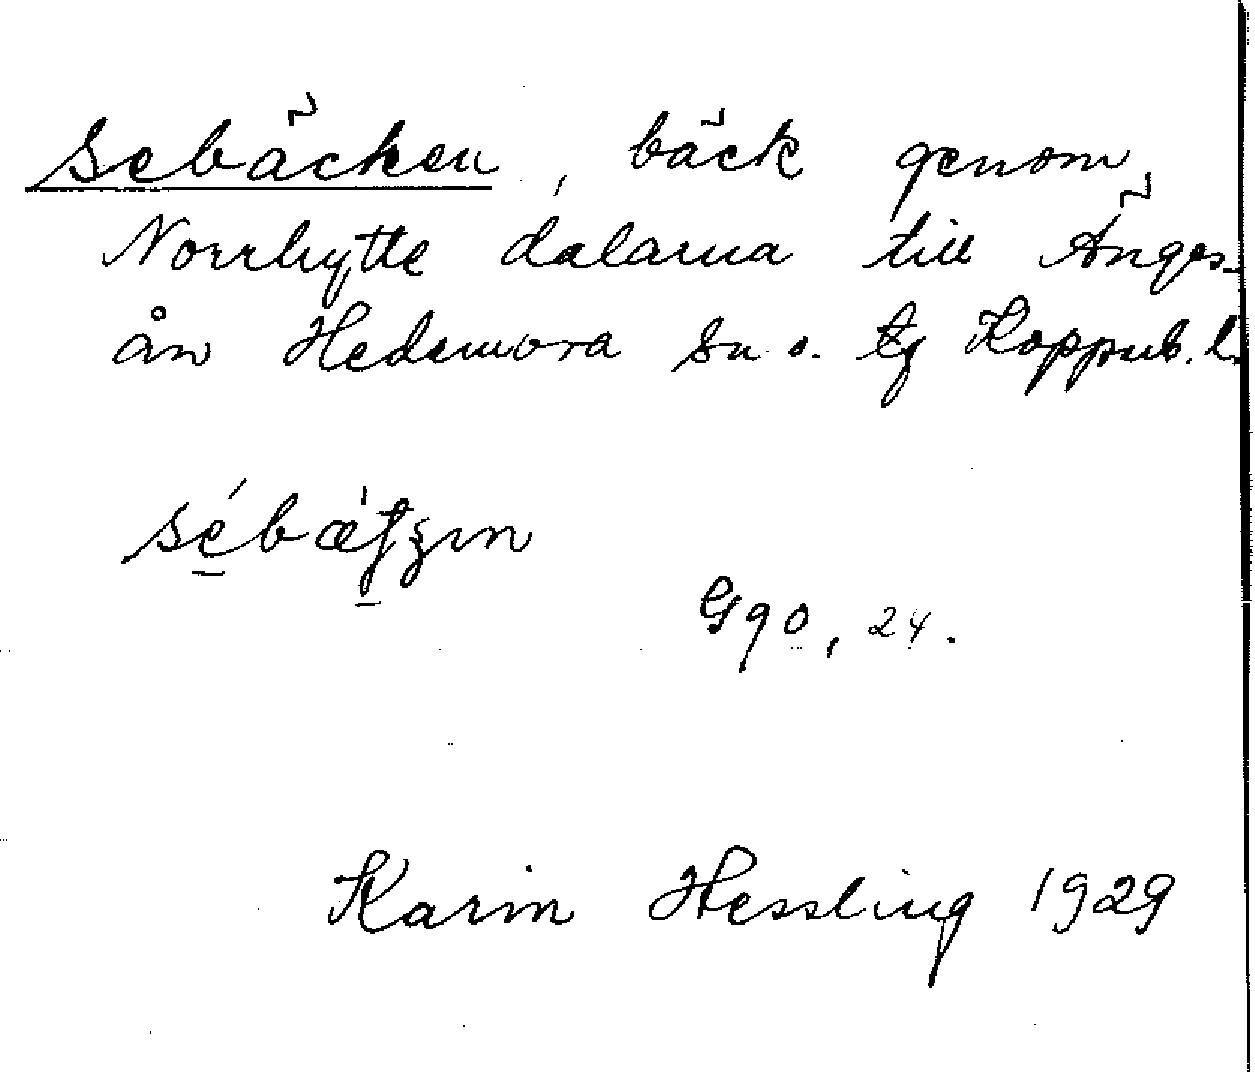 Sebäcken, bäck genom
Norrhytte dalarna till Änges-
ån Hedemora sn o. tg Koppub. l.
G90, 24.
Karin Hessling 1929